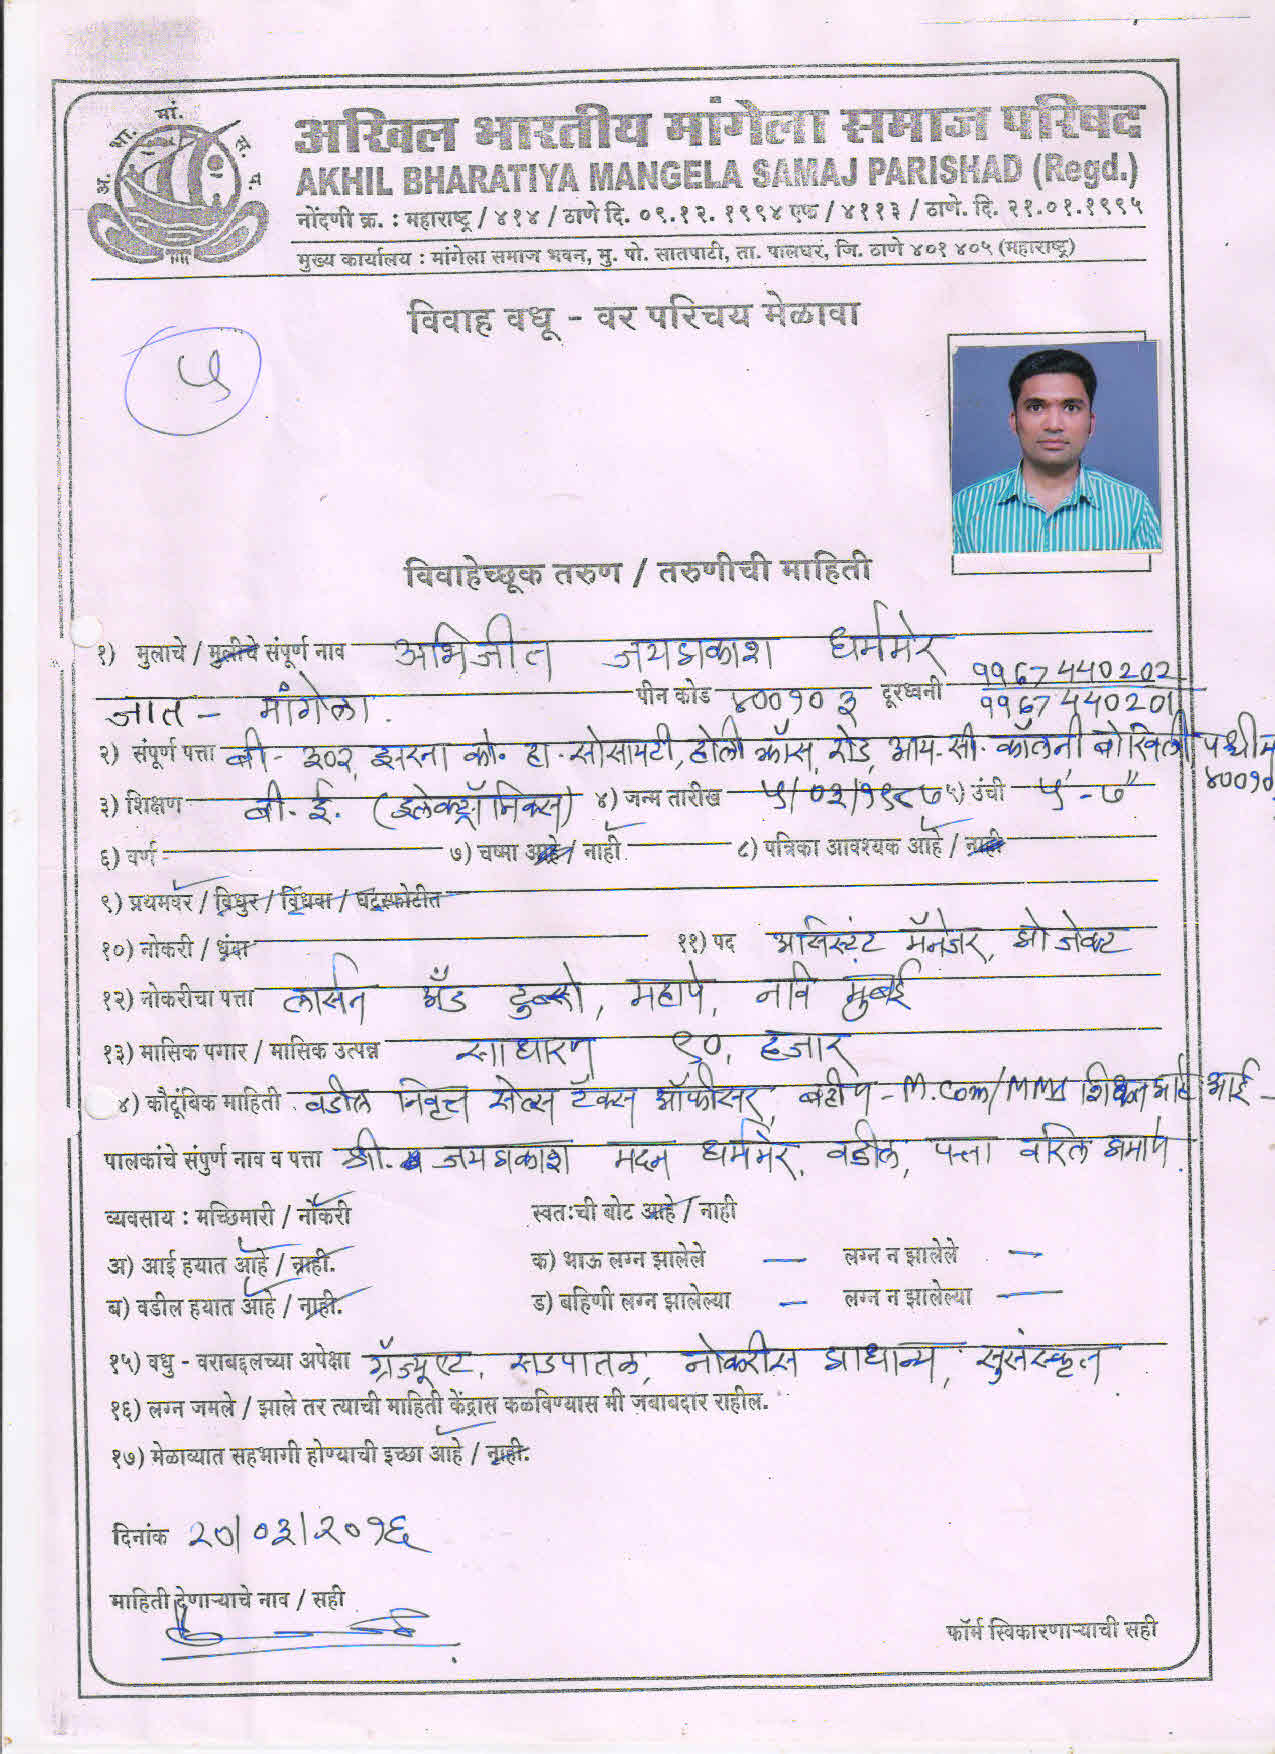 अ. भा. मां. स. प.
अखिल भारतीय मांगेला समाज परिषद
AKHIL BHARATIYA MANGELA SAMAJ PARISHAD (Regd.)
नोंदणी क्र. : महाराष्ट्र / ४१४ / ठाणे दि. ०९.१२. १९९४ एफ / ४११३ / ठाणे. दि. २१.०१.१९९५
मुख्य कार्यालय : मांगेला समाज भवन, मु. पो. सातपाटी, ता. पालघर, जि. ठाणे ४०१ ४०५ (महाराष्ट्र)
विवाह वधू - वर परिचय मेळावा
५
विवाहेच्छूक तरुण / तरुणीची माहिती
१) मुलाचे / मुलीचे संपूर्ण नाव अभिजीत जयप्रकाश धर्ममेर
जात - मांगेला. पीन कोड ४००१०३ दूरध्वनी ९९६७४४०२०२
९९६७४४०२०१
२) संपूर्ण पत्ता बी - ३०२, झरना को. हा. सोसायटी, होली क्रॉस रोड, आय. सी. कॉलनी बोरिवली पश्चीम
४००१०
३) शिक्षण बी. ई. (इलेक्ट्रॉनिक्स) ४) जन्म तारीख ५/०३/१९८७ ५) उंची ५'-७"
६) वर्ण ७) चष्मा आहे / नाही ८) पत्रिका आवश्यक आहे / नाही
९) प्रथमवर / विधुर / विधवा / घटस्फोटीत
१०) नोकरी / धंदा ११) पद असिस्टंट मॅनेजर, प्रोजेक्ट
१२) नोकरीचा पत्ता लार्सन अँड टुब्रो, महापे, नवि मुंबई
१३) मासिक पगार / मासिक उत्पन्न साधारण ९०, हजार
४) कौटूंबिक माहिती वडील निवृत्त सेल्स टॅक्स ऑफीसर, बहीण - M.Com/MMS शिकत आहे आई -
पालकांचे संपुर्ण नाव व पत्ता श्री. जयप्रकाश मदन धर्ममेर, वडील, पत्ता वरिल प्रमाणे.
व्यवसाय : मच्छिमारी / नौकरी स्वतःची बोट आहे / नाही
अ) आई हयात आहे / नाही. क) भाऊ लग्न झालेले — लग्न न झालेले —
ब) वडील हयात आहे / नाही. ड) बहिणी लग्न झालेल्या — लग्न न झालेल्या —
१५) वधु - वराबद्दलच्या अपेक्षा ग्रॅज्यूएट, सडपातळ, नोकरीस प्राधान्य, सुसंस्कृत
१६) लग्न जमले / झाले तर त्याची माहिती केंद्रास कळविण्यास मी जबाबदार राहील.
१७) मेळाव्यात सहभागी होण्याची इच्छा आहे / नाही.
दिनांक २०/०३/२०१६
माहिती देणाऱ्याचे नाव / सही
फॉर्म स्विकारणाऱ्याची सही